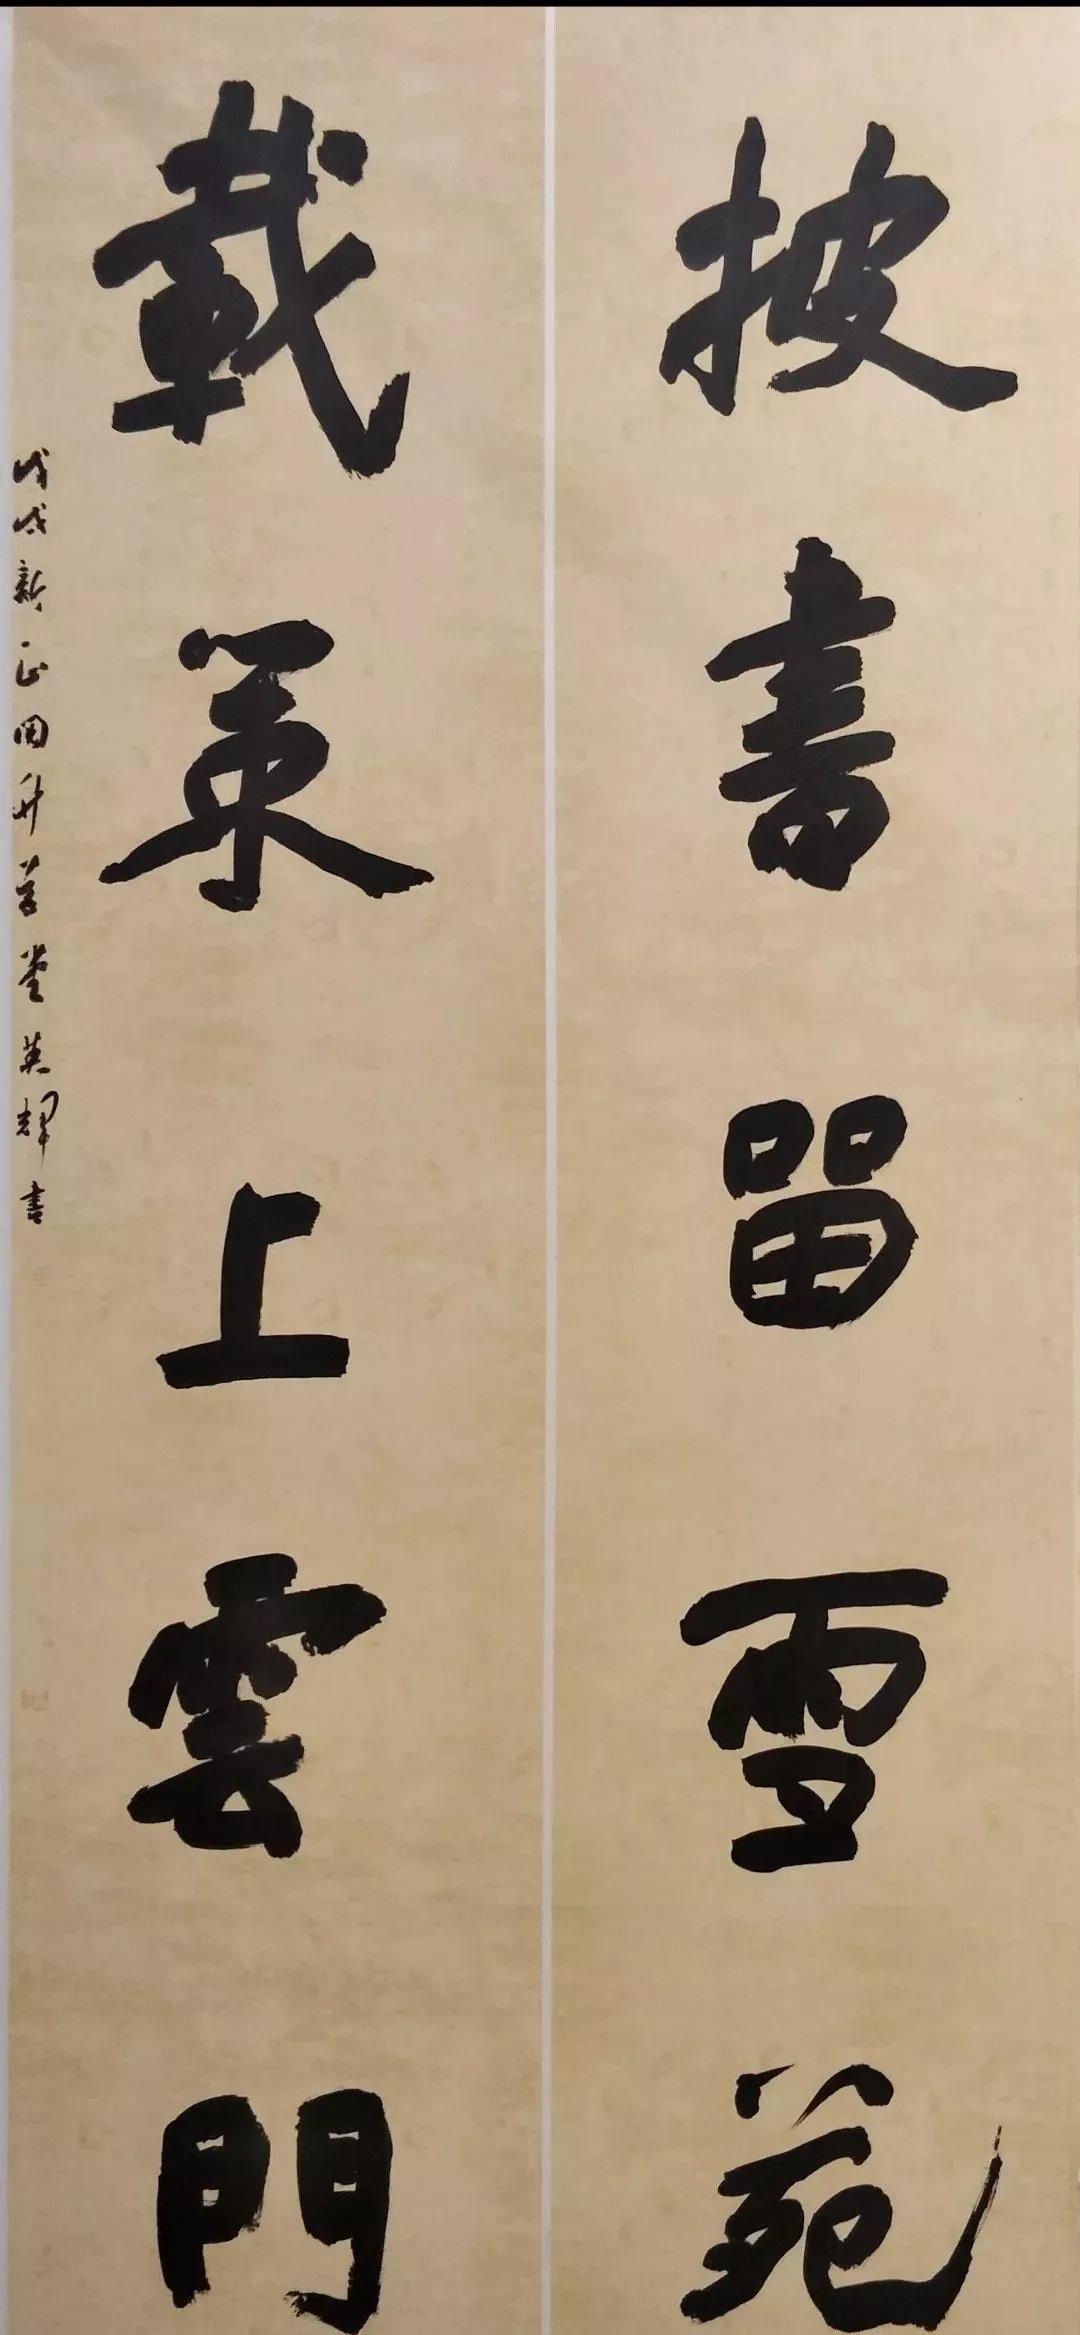 披書留雪苑
載策上雲門
戊戌新正同升草堂英輝書